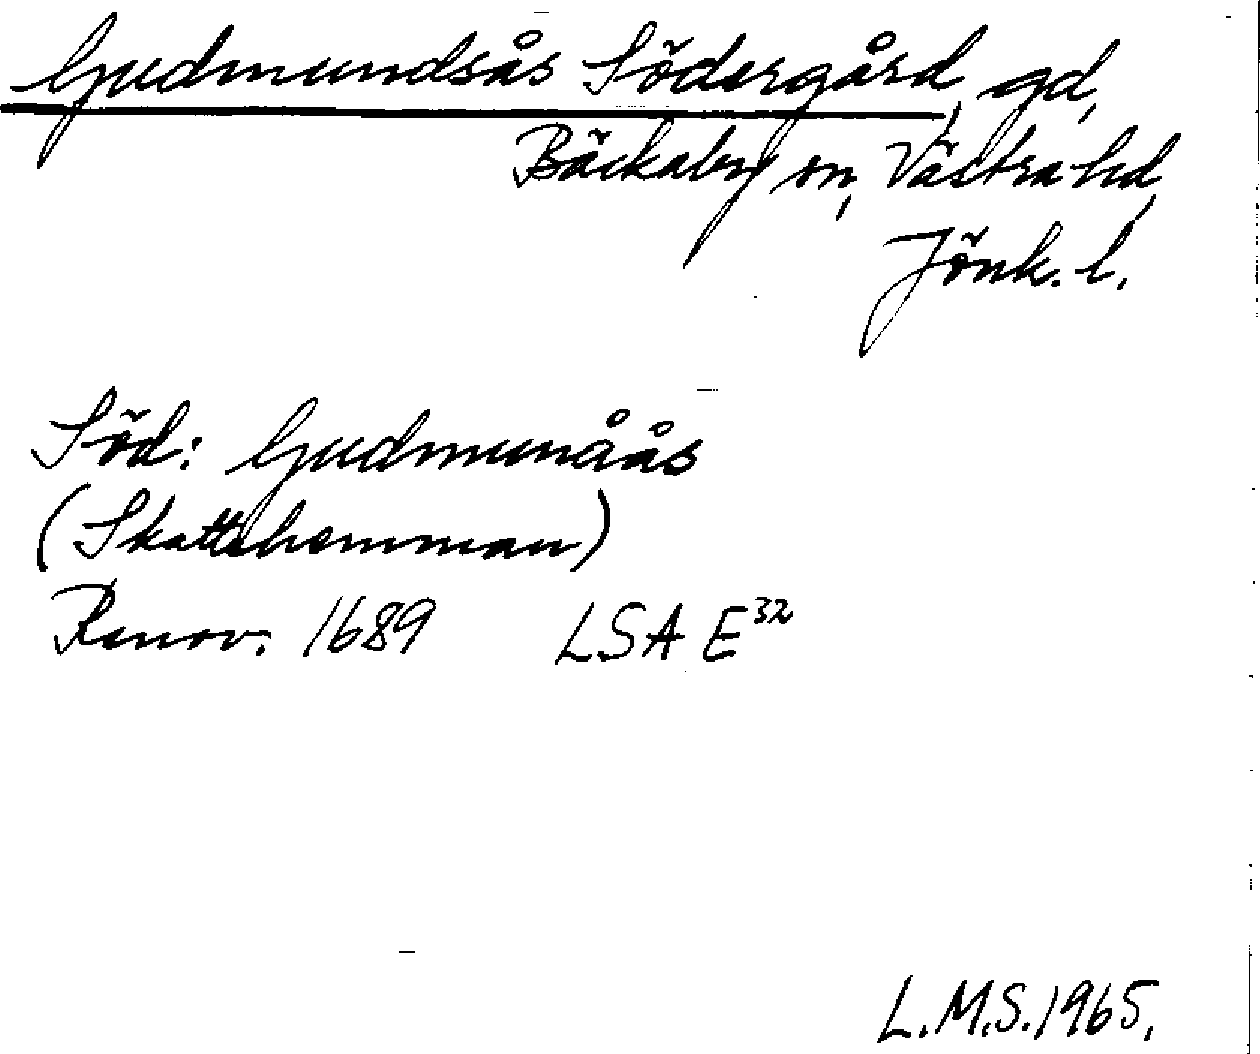 Gudmundsås Södergård, gd,
Bäckaby sn, Västra hd,
Jönk. l.
Söd: Gudmunåås
(Skattehemman)
Renov. 1689 LSA E³²
L.M.S. 1965.